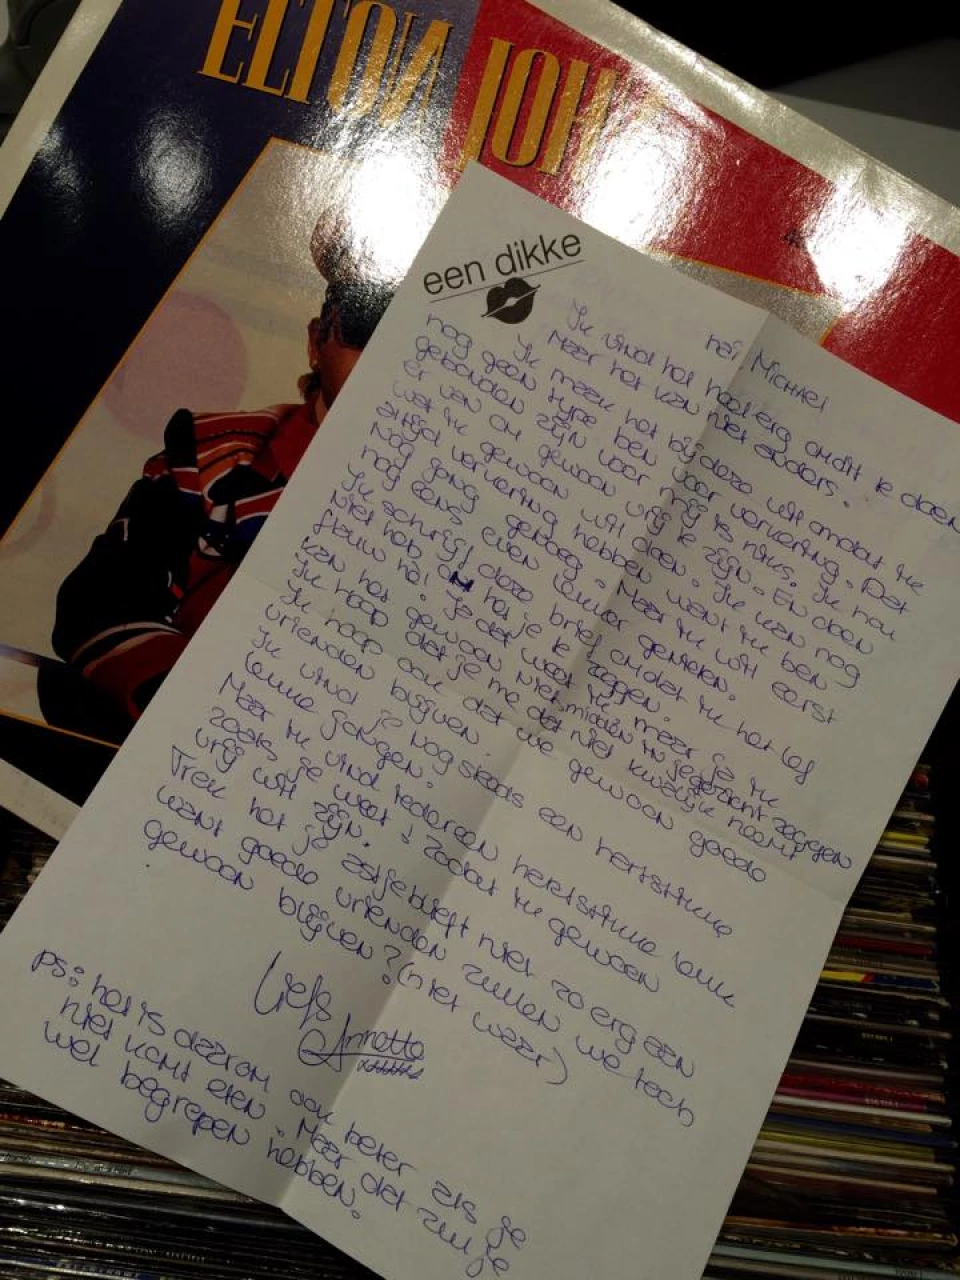 ELTON JOH
een dikke
hai Michael
Ik vind het heel erg om dit te doen
Maar het kan niet anders.
Ik maak het bij deze uit omdat ik
nog geen type ben voor verkering. Dat
gebonden zijn voor mij is niks. Ik hou
er van om gewoon vrij te zijn. En doen
wat ik gewoon wil doen. Ik kan nog
altijd verkering hebben want ik ben
nog jong genoeg. Maar ik wil eerst
nog eens even lekker genieten.
Ik schrijf deze brief omdat ik het lef
niet heb om het je te zeggen.
Flauw hè! Je dat weet ik maar ja ik
kan het gewoon niet midden in je gezicht zeggen
Ik hoop dat je me dat niet kwalijk neemt
Ik hoop ook dat we gewoon goede
vrienden blijven.
Ik vind je nog steeds een hartstikke
leuke jongen.
Maar ik vind iedereen hartstikke leuk
zoals je weet! Zodat ik gewoon
vrij wil zijn.
Trek het je astjeblieft niet zo erg aan
want goede vrienden zullen we toch
gewoon blijven? (niet waar)
Liefs
Annette
ps: het is daarom ook beter als je
niet komt eten. Maar dat zul je
wel begrepen hebben.